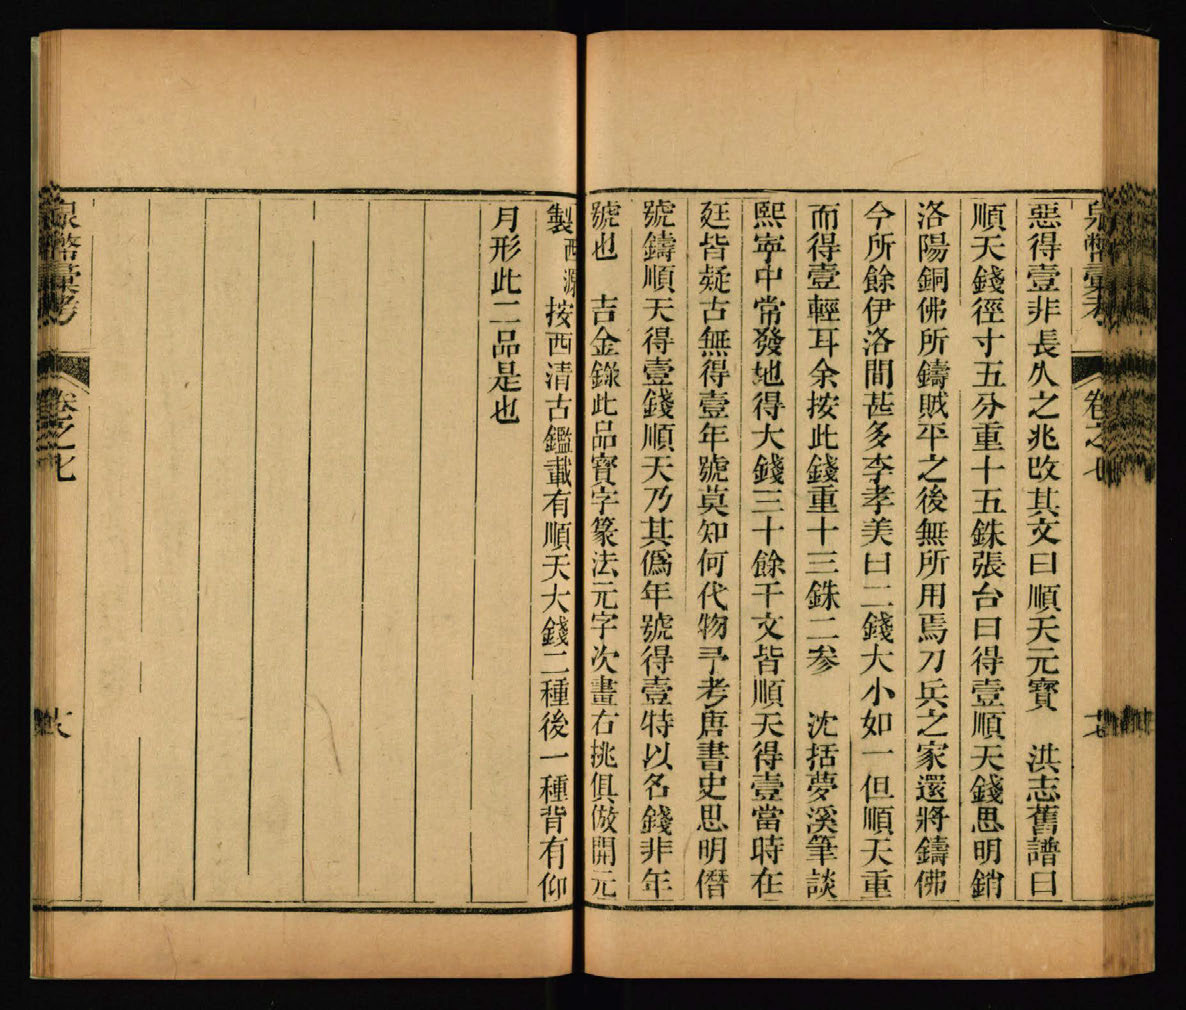 泉幣彙考 卷之七 十七
惡得壹非長久之兆改其文曰順天元寶 洪志舊譜曰
順天錢徑寸五分重十五銖張台曰得壹順天錢思明銷
洛陽銅佛所鑄賊平之後無所用焉刀兵之家還將鑄佛
今所餘伊洛間甚多李孝美曰二錢大小如一但順天重
而得壹輕耳余按此錢重十三銖二參 沈括夢溪筆談
熙寧中常發地得大錢三十餘千文皆順天得壹當時在
廷皆疑古無得壹年號莫知何代物予考唐書史思明僭
號鑄順天得壹錢順天乃其僞年號得壹特以名錢非年
號也 吉金錄此品寶字篆法元字次畫右挑俱倣開元
製 西源 按西清古鑑載有順天大錢二種後一種背有仰
月形此二品是也
泉幣彙考 卷之七